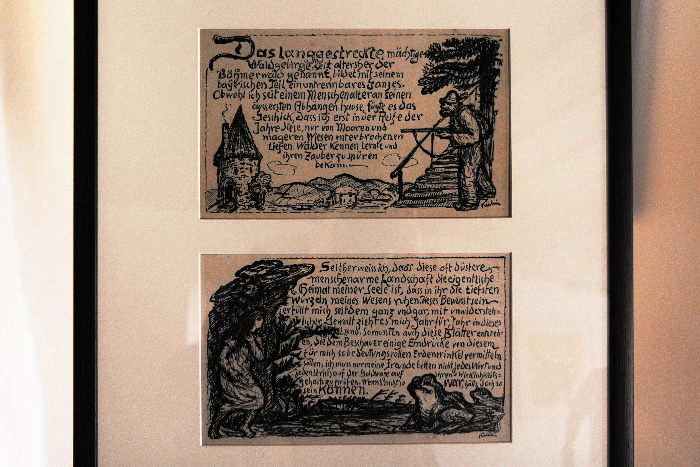 Das langgestreckte, mächtige
Waldgebirge, seit altersher der
Böhmerwald genannt, bildet mit seinem
bayrischen Teil ein untrennbares Ganzes.
Obwohl ich seit einem Menschenalter an seinen
äussersten Abhängen hause, fügte es das
Geschick, dass ich erst in der Reife der
Jahre diese, nur von Mooren und
mageren Wiesen unterbrochenen
tiefen Wälder kennen lernte und
ihren Zauber zu spüren
bekam.
Kubin
Seither weiss ich, dass diese oft düstere,
menschenarme Landschaft die eigentliche
Heimat meiner Seele ist, dass in ihr die tiefsten
Wurzeln meines Wesens ruhen. Dieses Bewusstsein
erfüllt mich seitdem ganz und gar, mit unwidersteh-
licher Gewalt zieht es mich, Jahr für Jahr in dieses
Land. So mussten auch diese Blätter entsteh-
en, die dem Beschauer einige Eindrücke von diesem
für mich so bedeutungsvollen Erdenwinkel vermitteln
sollen, ich muss nur meine Freunde bitten nicht jedes Wort und
jeden Strich auf der Goldwaage auf ihren Wirklichkeits-
gehalt zu prüfen. Wenn's nicht so war, hätt' doch so
sein können.
Kubin